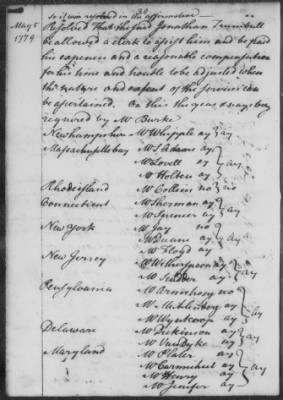 30
so it was resolved in the affirmative —
May 5 1779
Resolved That the said Jonathan Trumbull
be allowed a clerk to assist him and be paid
his expences and a reasonable compensation
for his time and trouble to be adjusted when
the nature and extent of the services can
be ascertained. On this the yeas & nays being
required by Mr Burke
Newhampshire Mr Whipple ay } ay
Massachusettsbay Mr S Adams ay
Mr Lovell ay } ay
Mr Holten ay
Rhode island Mr Collins no } no
Connecticut Mr Sherman ay } ay
Mr Spencer ay
New York Mr Jay no
Mr Duane ay } ay
Mr Floyd ay
New Jersey Mr Witherspoon ay } ay
Mr Scudder ay
Pensylvania Mr Armstrong no
Mr Muhlenberg ay } ay
Mr Wynkoop ay
Delaware Mr Dickinson ay } ay
Mr VanDyke ay
Maryland Mr Plater ay
Mr Carmichael ay } ay
Mr Henry ay
Mr Jenifer ay